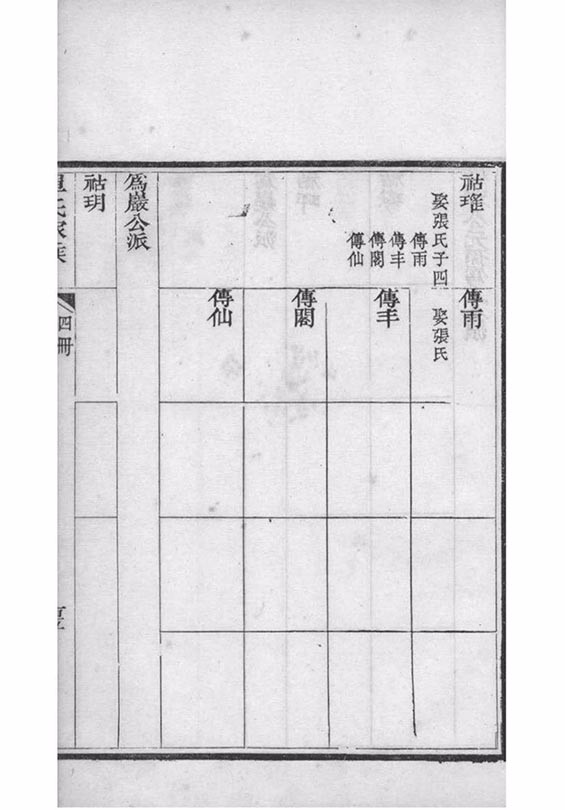 祜璀
娶張氏子四
傳雨
傳丰
傳閣
傳仙
傳雨
娶張氏
傳丰
傳閣
傳仙
為巖公派
祜玥
四冊